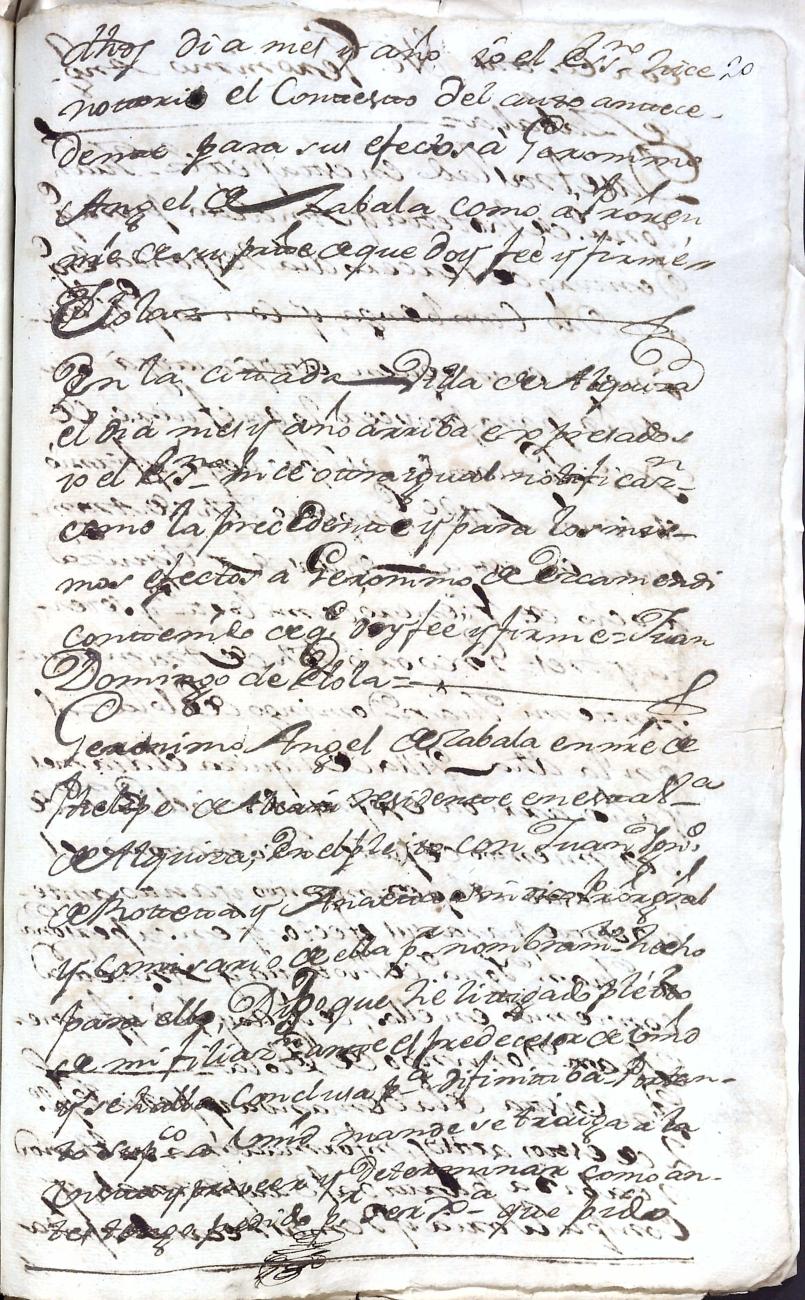 dhos dia mes y año yo el Essno hice 20
notorio el Contesto del auto antece-
dente para sus efectos â Geronimo
Angel de Zabala como â Pror en
nre de su parte de que doy feè y firmè =
Elola =
En la cittada Villa de Alquiza
el dia mes y año arriba expresados
yo el Essno hice otra igual notificazn
como la precedente y para los mis-
mos efectos â Geronimo de Vicamendi
contenido de qe doy feè y firme = Juan
Domingo de Elola =
Geronimo Angel de Zabala en nre de
Phelipe de residente en esta Va
de Alquiza, En el pleito con Juan Ygno
de Rotteta y Pror gral
y Comisario de ella pr nombramto hecho
para ello, Digo que he litigado pleito
de mi filiazn ante el predecesor de Vmd
y se halla Conclusa pa difinitiba Por tan-
to supco â Vmd mande se traiga a la
vista y proveer y Determinar como an-
tes tengo pedido pr ser Jª que pido